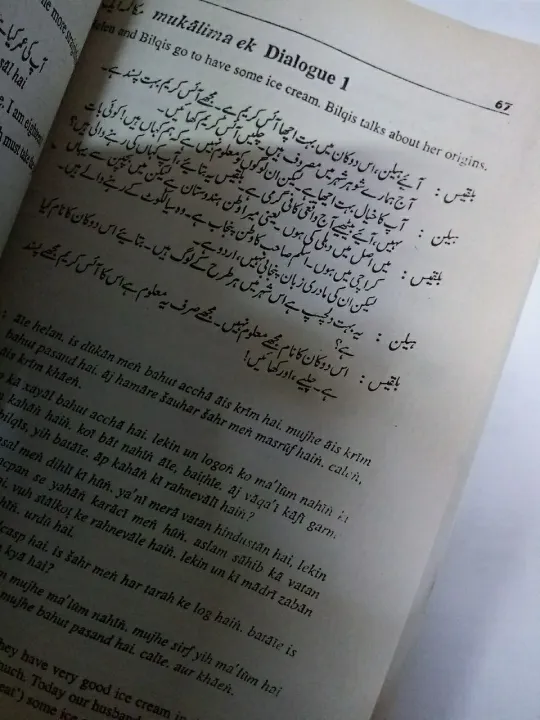 67
mukālima ek Dialogue 1
Helen and Bilqis go to have some ice cream. Bilqis talks about her origins.
بلقیس : آیئے ہیلن، اس دوکان میں بہت اچھا آئس کریم ہے۔ مجھے آئس کریم بہت پسند ہے۔
آج ہمارے شوہر شہر میں مصروف ہیں۔ چلیں، آئس کریم کھائیں۔
ہیلن : آپ کا خیال بہت اچھا ہے۔ لیکن ان لوگوں کو معلوم نہیں ہے کہ ہم کہاں ہیں! کوئی بات
نہیں، آیئے، بیٹھیے۔ آج واقعی کافی گرمی ہے۔ بلقیس، یہ بتایئے، آپ کہاں کی رہنے والی ہیں؟
بلقیس : میں اصل میں دہلی کی ہوں۔ یعنی میرا وطن ہندوستان ہے۔ لیکن میں بچپن سے یہاں
کراچی میں ہوں۔ اسلم صاحب کا وطن پنجاب ہے۔ وہ سیالکوٹ کے رہنے والے ہیں۔
لیکن ان کی مادری زبان پنجابی نہیں، اردو ہے۔
ہیلن : یہ بہت دلچسپ ہے۔ اس شہر میں ہر طرح کے لوگ ہیں۔ بتایئے اس دوکان کا نام کیا
ہے؟
بلقیس : اس دوکان کا نام مجھے معلوم نہیں۔ مجھے صرف یہ معلوم ہے اس کا آئس کریم مجھے پسند
ہے۔ چلیے، اور کھائیں!
āīe helan, is dūkān meṅ bahut acchā āis krīm hai. mujhe āis krīm
bahut pasand hai. āj hamāre šauhar šahr meṅ masrūf haiṅ. caleṅ,
āis krīm khāeṅ.
kā xayāl bahut acchā hai. lekin un logoṅ ko ma'lūm nahīṅ
kahāṅ haiṅ. koī bāt nahīṅ āīe, baiṭhīe. āj vāqa'ī kāfī garm
bilqīs, yih batāīe, āp kahāṅ kī rahnevālī haiṅ?
asal meṅ dihlī kī hūṅ. ya'nī merā vatan hindustān hai. lekin
bacpan se yahāṅ karācī meṅ hūṅ. aslam sāhib kā vatan
vuh siālkoṭ ke rahnevāle haiṅ. lekin un kī mādrī zabān
nahīṅ, urdū hai.
hai. is šahr meṅ har tarah ke log haiṅ. batāīe is
kyā hai?
mujhe ma'lūm nahīṅ. mujhe sirf yih ma'lūm hai
mujhe bahut pasand hai. calīe, aur khāeṅ.
They have very good ice cream in
much. Today our husband
some ice